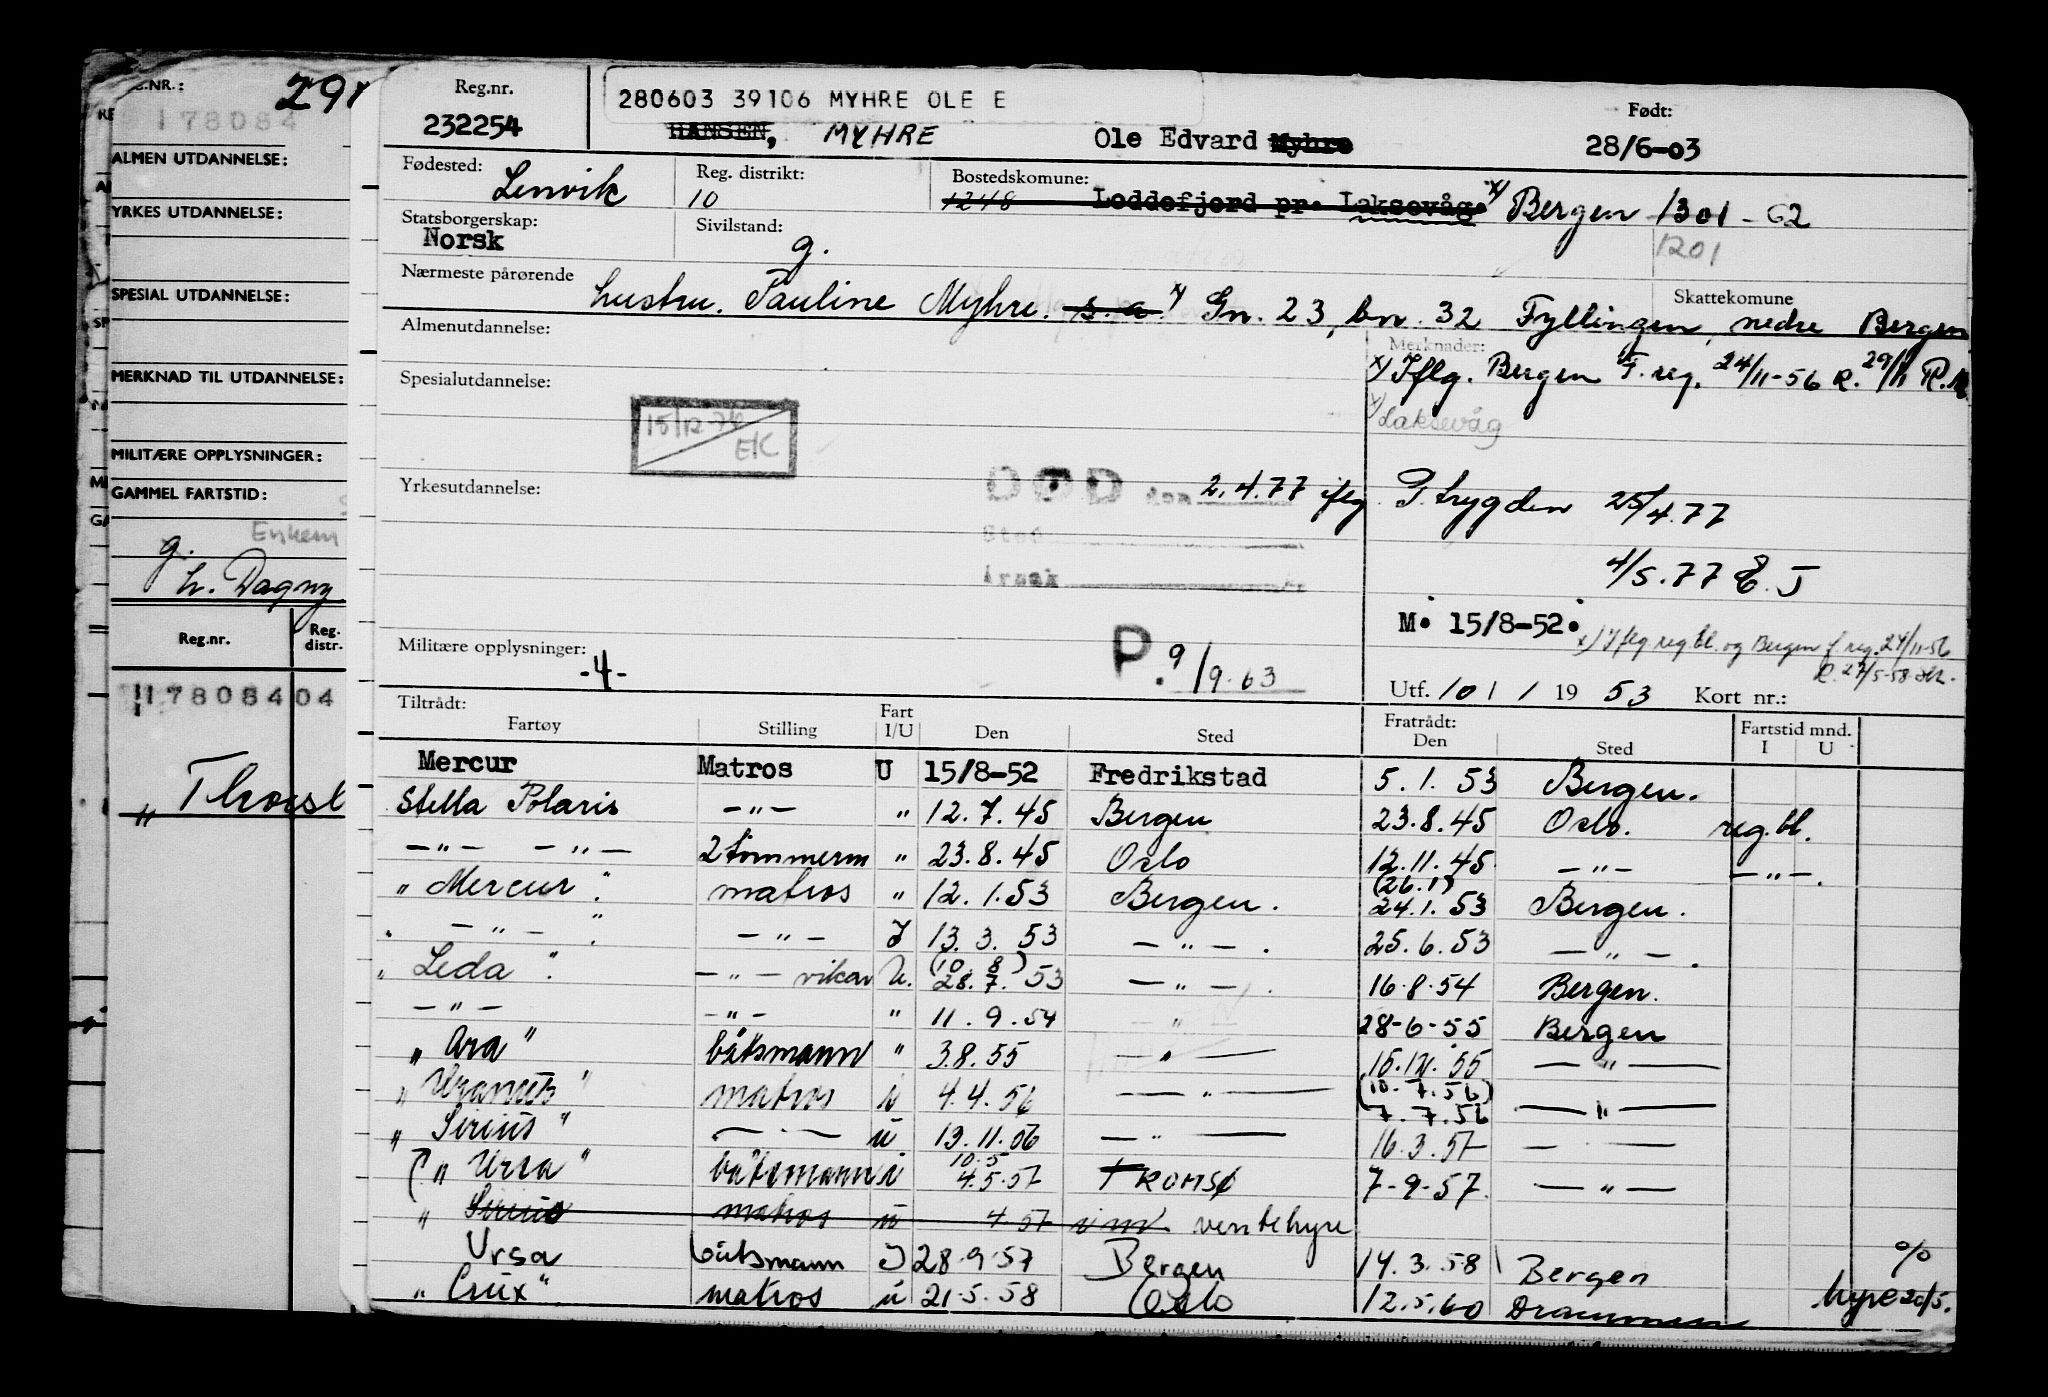 G.NR.: 29
178084
ALMEN UTDANNELSE:
YRKES UTDANNELSE:
SPESIAL UTDANNELSE:
MERKNAD TIL UTDANNELSE:
MILITÆRE OPPLYSNINGER:
GAMMEL FARTSTID:
Enkem
g.
h. Dagny
Reg.nr. Reg. distr.
178084 04
" Thorsl
Reg.nr. 232254
280603 39106 MYHRE OLE E
HANSEN, MYHRE Ole Edvard Myhre
Født: 28/6-03
Fødested: Lenvik
Reg. distrikt: 10
Bostedskomune: 1248 Loddefjord pr. Laksevåg. x) Bergen 1301 - G2
1201
Statsborgerskap: Norsk
Sivilstand: g.
Nærmeste pårørende hustru. Pauline Myhre. s. a. x) Gn. 23, bn. 32 Fyllingen, nedre Bergen
Skattekomune
Almenutdannelse:
Merknader:
x) Iflg. Bergen F. reg. 24/11-56 R. 29/11 R.M
x) Laksevåg
Spesialutdannelse:
15/12-76 EK
Yrkesutdannelse:
DØD den 2.4.77 iflg P. trygden 25/4.77
Sted
Årsak
4/5.77 E.J
M. 15/8-52.
x) Iflg reg bl. og Bergen f. reg. 24/11-56
Militære opplysninger: -4-
P. 9/9.63
Utf. 10 1 / 1953 Kort nr.:
Tiltrådt: Fratrådt: Fartstid mnd.
Fartøy Stilling Fart I/U Den Sted Den Sted I U
Mercur Matros U 15/8-52 Fredrikstad 5.1.53 Bergen.
Stella Polaris -"- " 12.7.45 Bergen 23.8.45 Oslo. reg.bl.
-"- -"- 2 tømmerm " 23.8.45 Oslo 12.11.45 -"- -"-.
" Mercur". matros " 12.1.53 Bergen. (26.1) 24.1.53 Bergen.
" -"- ". -"- I 13.3.53 -"-. 25.6.53 -"-.
" Leda ". -"- vikar U. (10.8) 28.7.53 -"-. 16.8.54 Bergen.
-"- -"- " 11.9.54 " 28-6-55 Bergen
" Ara " båtsmann " 3.8.55 -"- 15.12.55 -"-
" Uranus " matros i 4.4.56 -"- (10.7.56) 7.7.56 -"-
" Sirius " -"- u 13.11.56 -"- 16.3.57 -"-
" Ursa " båtsmann i 10.5 4.5.57 TROMSØ 7-9-57. -"-
" Sirius matros u 4.57 ventehyre
Ursa båtsmann I 28.9.57 Bergen 14.3.58 Bergen
" Crux" matros u 21.5.58 Oslo 12.5.60 Drammen % hyre 20/5.